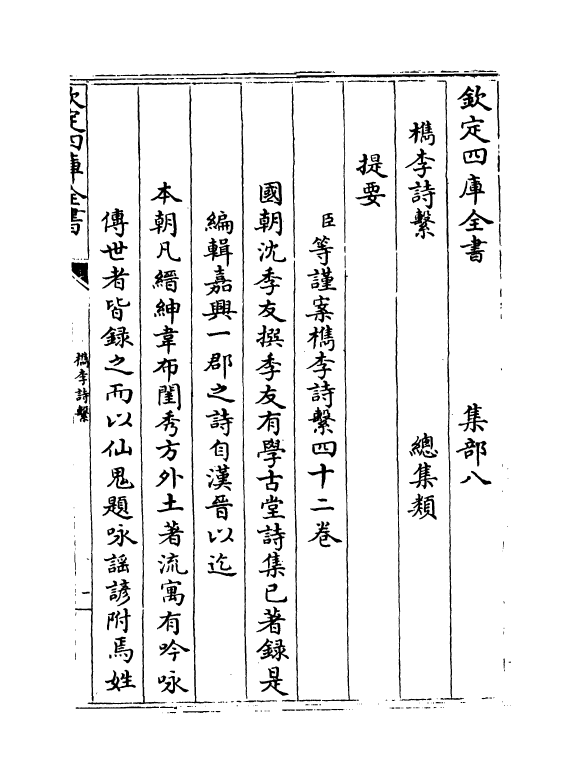 欽定四庫全書　集部八
檇李詩繫　總集類
提要
臣等謹案檇李詩繫四十二卷
國朝沈季友撰季友有學古堂詩集已著録是
編輯嘉興一郡之詩自漢晉以迄
本朝凡縉紳韋布閨秀方外土著流寓有吟咏
傳世者皆録之而以仙鬼題咏謡諺附焉姓
欽定四庫全書
檇李詩繫
一